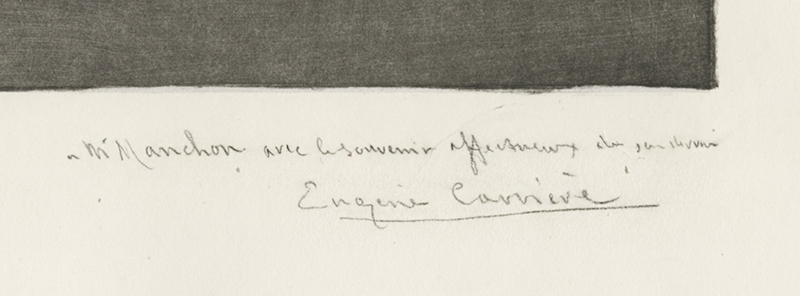 a Mr Manchon avec le souvenir affectueux de son
Eugène Carrière